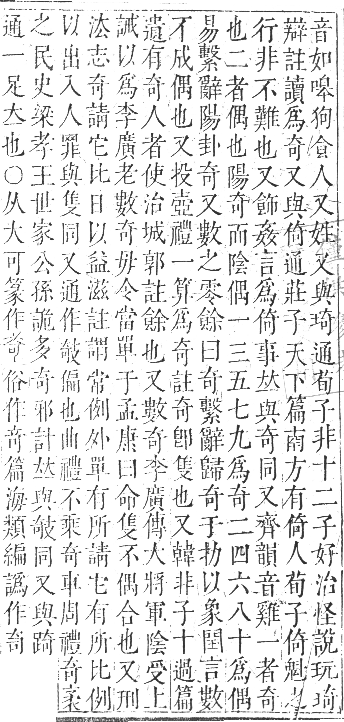 音如嗥狗食人又姓又與琦通荀子非十二子好治怪說玩琦
辯註讀爲奇又與倚通莊子天下篇南方有倚人荀子倚魁之
行非不難也又飾姦言爲倚事𠀤與奇同又齊韻音雞一者奇
也二者偶也陽奇而陰偶一三五七九爲奇二四六八十爲偶
易繫辭陽卦奇又數之零餘曰奇繫辭歸奇于扐以象閏言數
不成偶也又投壺禮一算爲奇註奇卽隻也又韓非子十過篇
遺有奇人者使治城郭註餘也又數奇李廣傳大將軍陰受上
誡以爲李廣老數奇毋令當單于孟康曰命隻不偶合也又刑
法志奇請它比日以益滋註謂常例外單有所請它有所比例
以出入人罪與隻同又通作㪰偏也曲禮不乘奇車周禮奇衺
之民史梁孝王世家公孫詭多奇邪計𠀤與㪰同又與踦
通一足大也〇从大可篆作奇俗作竒篇海類編譌作奇